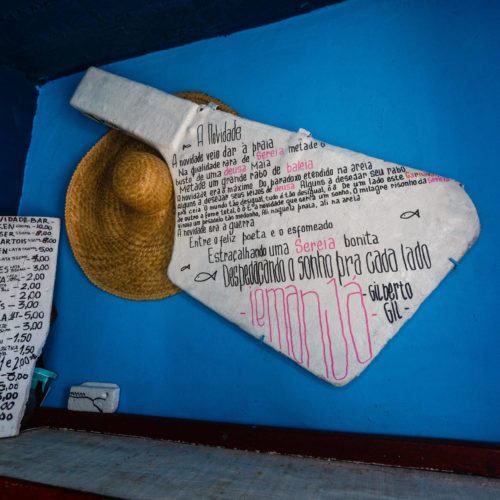 A Novidade
A novidade veio dar à praia
Na qualidade rara de Sereia metade o
busto de uma deusa Maia
Metade um grande rabo de baleia
A novidade era o máximo Do paradoxo estendido na areia
Alguns a desejar seus beijos de deusa Alguns a desejar seu rabo
pra ceia O mundo tão desigual, tudo é tão desigual, ô De um lado este carnaval
do outro a fome total, ô E a novidade que seria um sonho, O milagre risonho da Sereia
virava um pesadelo tão medonho, Ali naquela praia, ali na areia
A novidade era a guerra
Entre o feliz poeta e o esfomeado
Estraçalhando uma Sereia bonita
Despedaçando o sonho pra cada lado
-Iemanjá-
-Gilberto
GIL-
VIDADE-BAR
10,00
8,00
ARTOIS
5,00
3,00
3,00
2,00
3,00
5,00
3,00
1,50
1,50
e 200
3,00
2,00
3,00